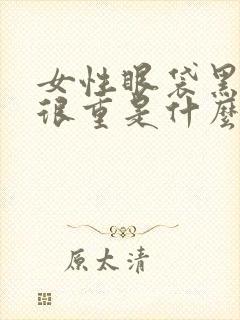 女性眼袋黑
很重是什麼
原太清